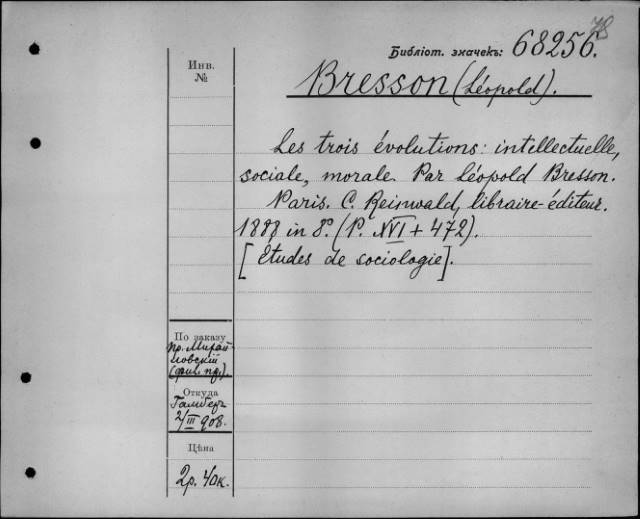 78
Библіот. значекъ: 68256.
Инв.
№
Bresson (Léopold).
Les trois évolutions: intellectuelle,
sociale, morale. Par Léopold Bresson.
Paris. C. Reinwald, libraire-éditeur.
1888 in 8°. (P. XVI + 472).
[Études de sociologie].
По заказу
пр. Михай-
ловскій
(фил. пр.).
Откуда
Гамберъ
2/III 908.
Цѣна
2р. 40к.